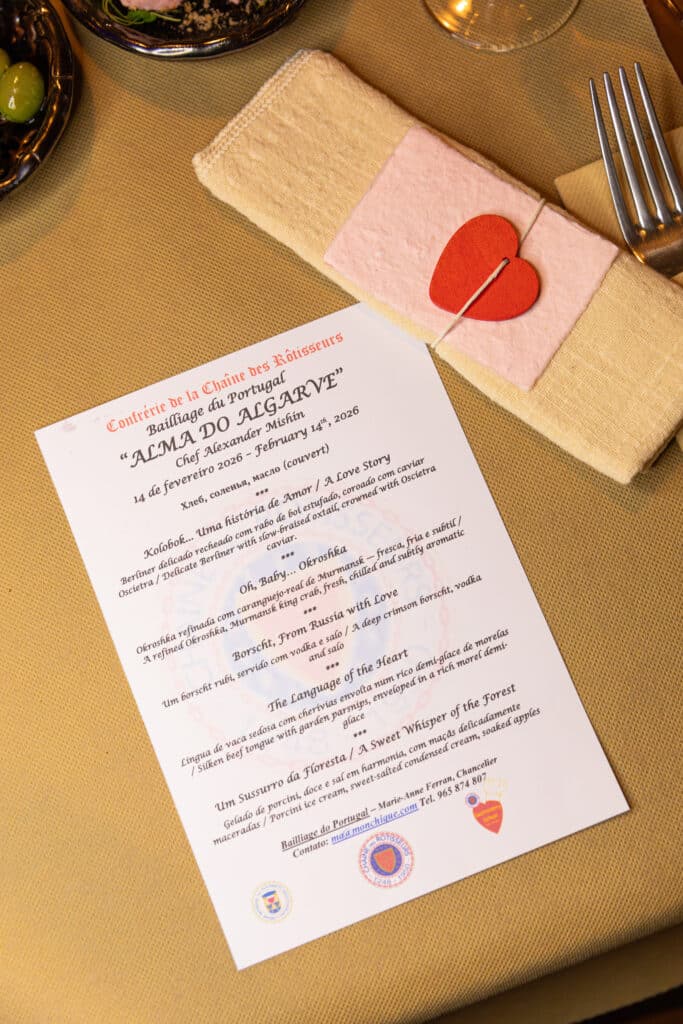 Confrérie de la Chaîne des Rôtisseurs
Bailliage du Portugal
“ALMA DO ALGARVE”
Chef Alexander Mishin
14 de fevereiro 2026 – February 14th, 2026
Хлеб, соленья, масло (couvert)
***
Kolobok... Uma história de Amor / A Love Story
Berliner delicado recheado com rabo de boi estufado, coroado com caviar
Oscietra / Delicate Berliner with slow-braised oxtail, crowned with Oscietra
caviar.
***
Oh, Baby... Okroshka
Okroshka refinada com caranguejo-real de Murmansk — fresca, fria e subtil /
A refined Okroshka, Murmansk king crab, fresh, chilled and subtly aromatic
***
Borscht, From Russia with Love
Um borscht rubi, servido com vodka e salo / A deep crimson borscht, vodka
and salo
***
The Language of the Heart
Língua de vaca sedosa com cherivias envolta num rico demi-glace de morelas
/ Silken beef tongue with garden parsnips, enveloped in a rich morel demi-
glace
***
Um Sussurro da Floresta / A Sweet Whisper of the Forest
Gelado de porcini, doce e sal em harmonia, com maçãs delicadamente
maceradas / Porcini ice cream, sweet-salted condensed cream, soaked apples
Bailliage du Portugal – Marie-Anne Ferran, Chancelier
Contato: ma@monchique.com Tel. 965 874 807
CHAINE DES ROTISSEURS
1248 - 1950